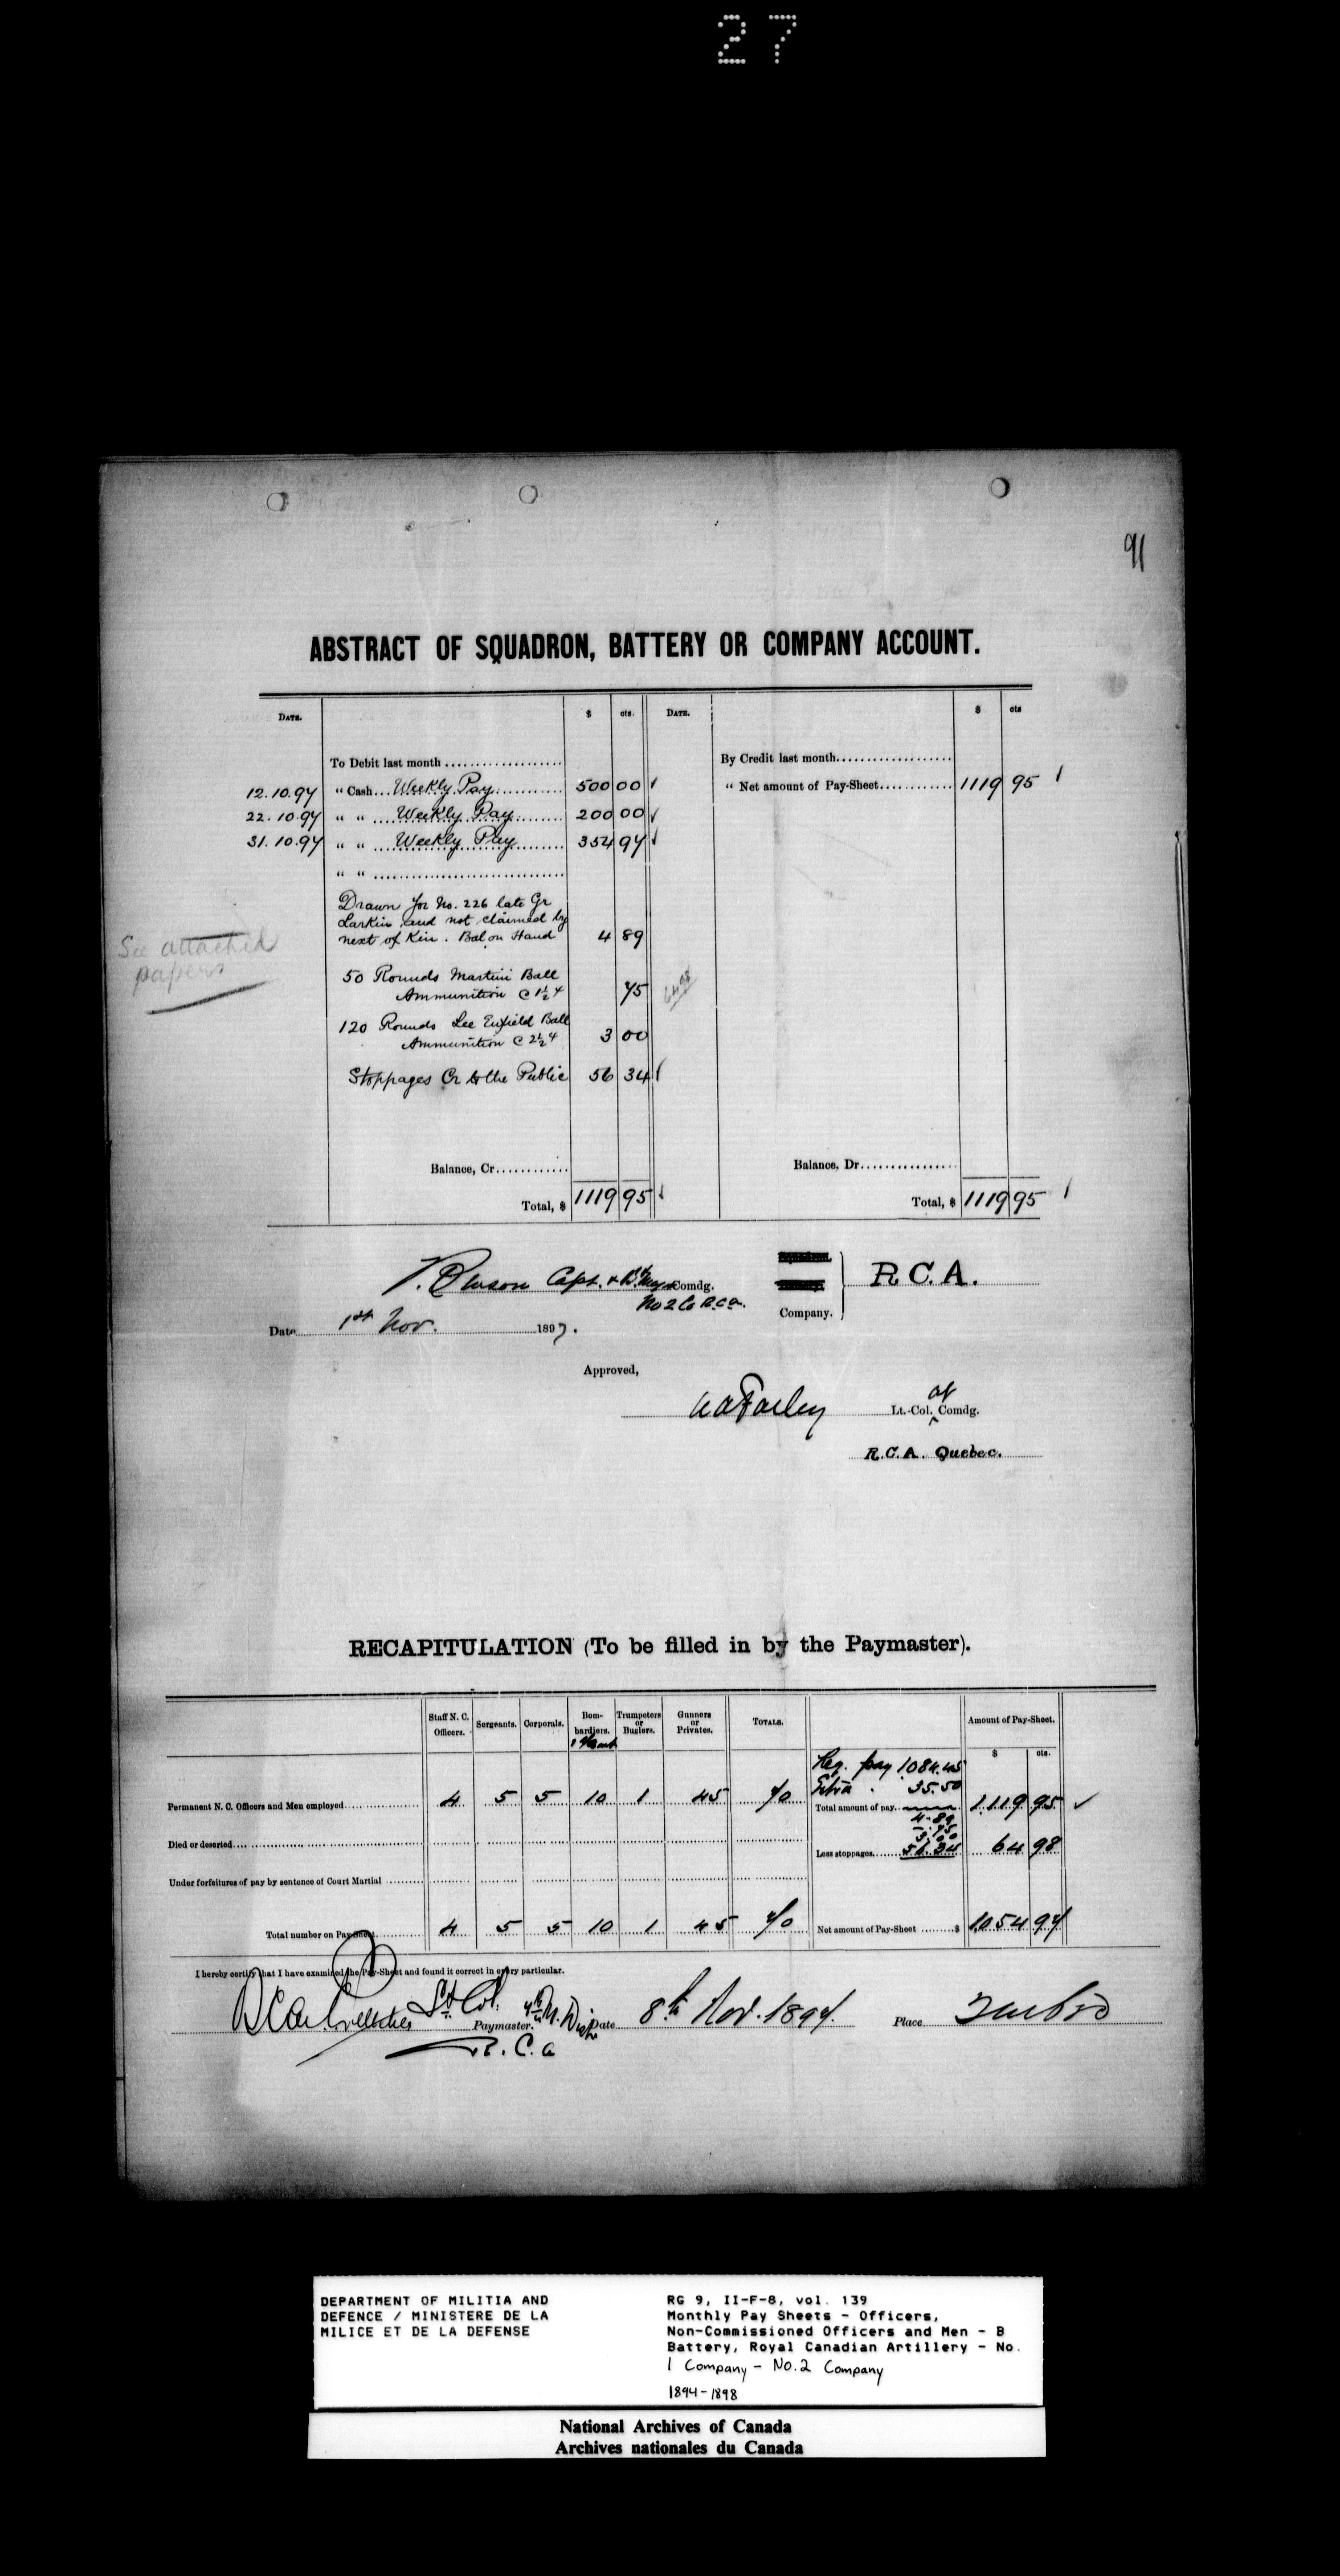 27
91
ABSTRACT OF SQUADRON, BATTERY OR COMPANY ACCOUNT.
DATE. $ cts. DATE. $ cts
To Debit last month By Credit last month
12.10.97 " Cash Weekly Pay 500 00 " Net amount of Pay-Sheet 1119 95
22.10.97 " " Weekly Pay 200 00
31.10.97 " " Weekly Pay 354 97
" "
Drawn for No. 226 late Gr
Larkin and not claimed by
next of Kin. Bal on Hand 4 89
See attached
papers
50 Rounds Martini Ball
Ammunition @ 1½ ¢ 75
64.98
120 Rounds Lee Enfield Ball
Ammunition @ 2½ ¢ 3 00
Stoppages Cr to the Public 56 34
Balance, Cr. Balance, Dr.
Total, $ 1119 95 Total, $ 1119 95
Capt. Comdg.
No 2 Co R.C.A.
Company. R.C.A.
Date 1st Nov. 1897.
Approved,
Lt.-Col. Comdg.
R.C.A. Quebec.
RECAPITULATION (To be filled in by the Paymaster).
Staff N. C. Officers. Sergeants. Corporals. Bom-bardiers. Trumpeters or Buglers. Gunners or Privates. TOTALS. Amount of Pay-Sheet.
$ cts.
Reg. pay 1084.45
Extra 35.50
Permanent N. C. Officers and Men employed 4 5 5 10 1 45 70 Total amount of pay 1119 95
4.89
.75
3.00
Died or deserted Less stoppages 56.34 64 98
Under forfeitures of pay by sentence of Court Martial
Total number on Pay-Sheet 4 5 5 10 1 45 70 Net amount of Pay-Sheet $ 1054 97
I hereby certify that I have examined the Pay-Sheet and found it correct in every particular.
Lt. Col. Paymaster. Date 8th Nov. 1897. Place Quebec
R.C.A
DEPARTMENT OF MILITIA AND
DEFENCE / MINISTERE DE LA
MILICE ET DE LA DEFENSE
RG 9, II-F-8, vol. 139
Monthly Pay Sheets - Officers,
Non-Commissioned Officers and Men - B
Battery, Royal Canadian Artillery - No.
1 Company - No.2 Company
1894-1898
National Archives of Canada
Archives nationales du Canada